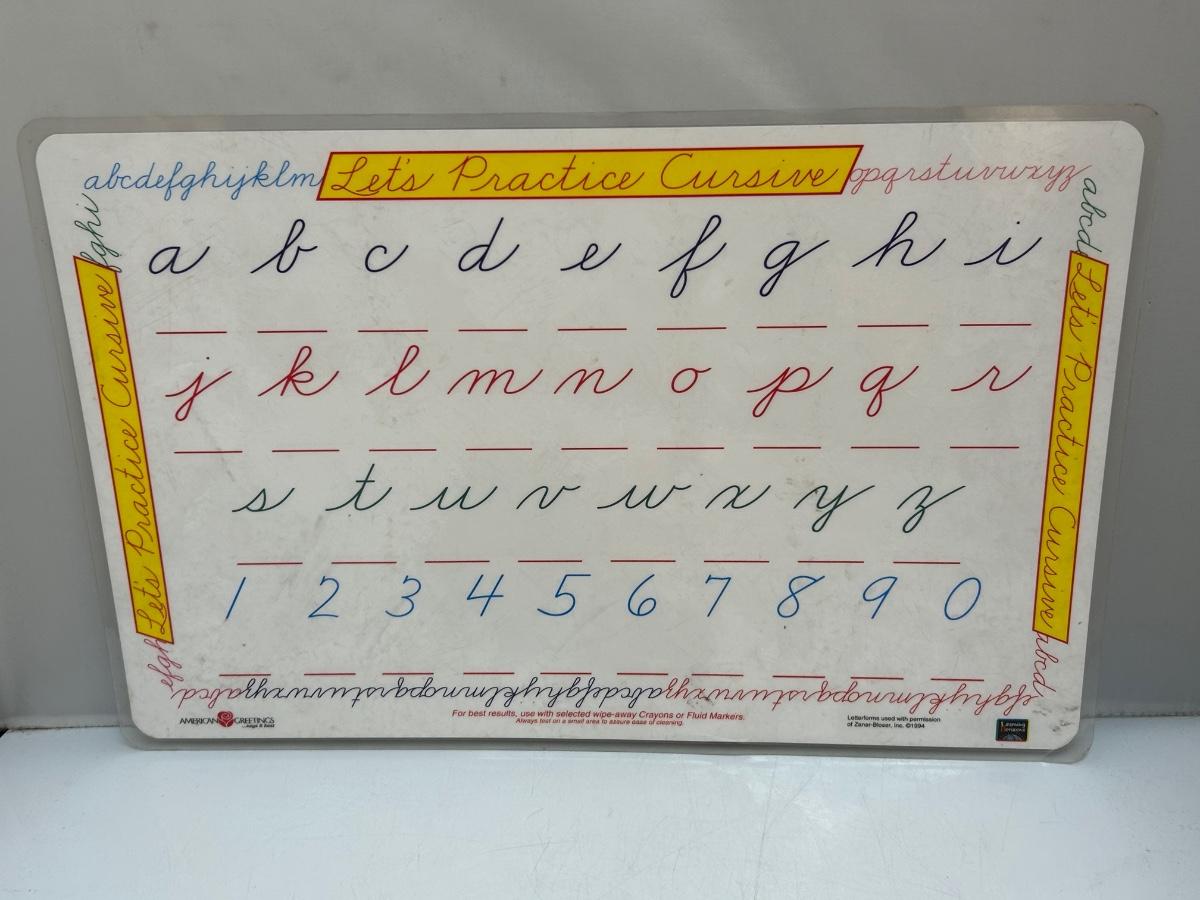 abcdefghijklm Let's Practice Cursive opqrstuvwxyz
a b c d e f g h i
j k l m n o p q r
s t u v w x y z
1 2 3 4 5 6 7 8 9 0
fghi
Let's Practice Cursive
efgh
abcd
Let's Practice Cursive
abcd
AMERICAN GREETINGS
For best results, use with selected wipe-away Crayons or Fluid Markers.
Always test on a small area to assure ease of cleaning.
Letterforms used with permission
of Zaner-Bloser, Inc. ©1994
Learning Horizons